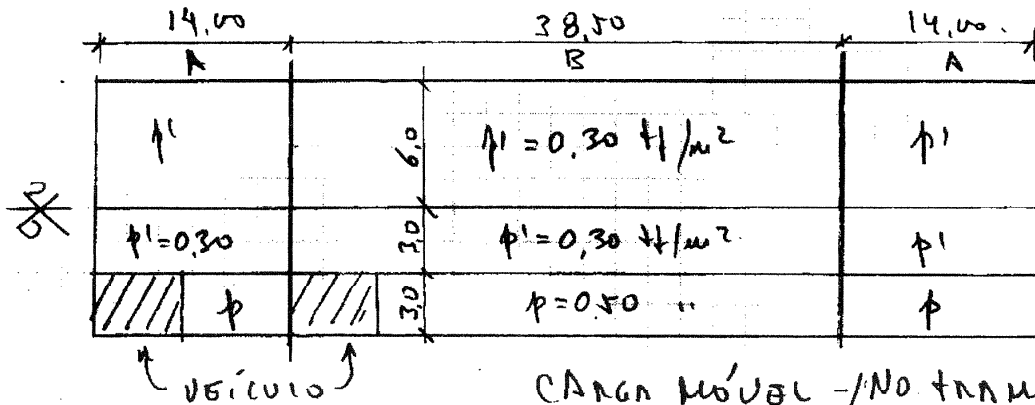 14,00 38,50 14,00.
A B A
p' 6,0 p' = 0,30 tf/m² p'
p' = 0,30 3,0 p' = 0,30 tf/m² p'
p 3,0 p = 0,50 " p
VEÍCULO CARGA MÓVEL - NO TRAM